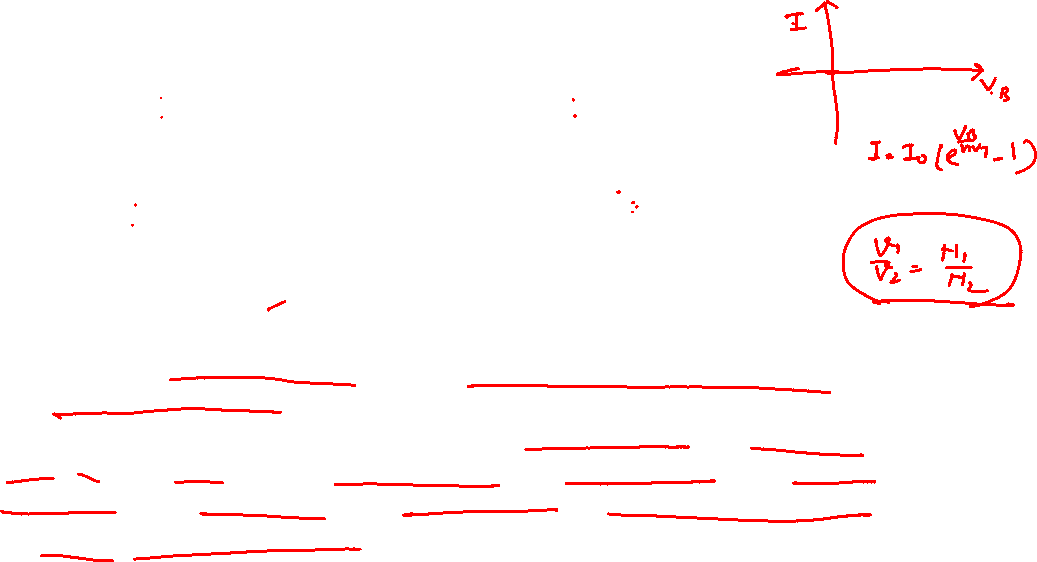 I
V_B
I = I_0 (e^{V_B/mV_T} - 1)
V_1/V_2 = H_1/H_2